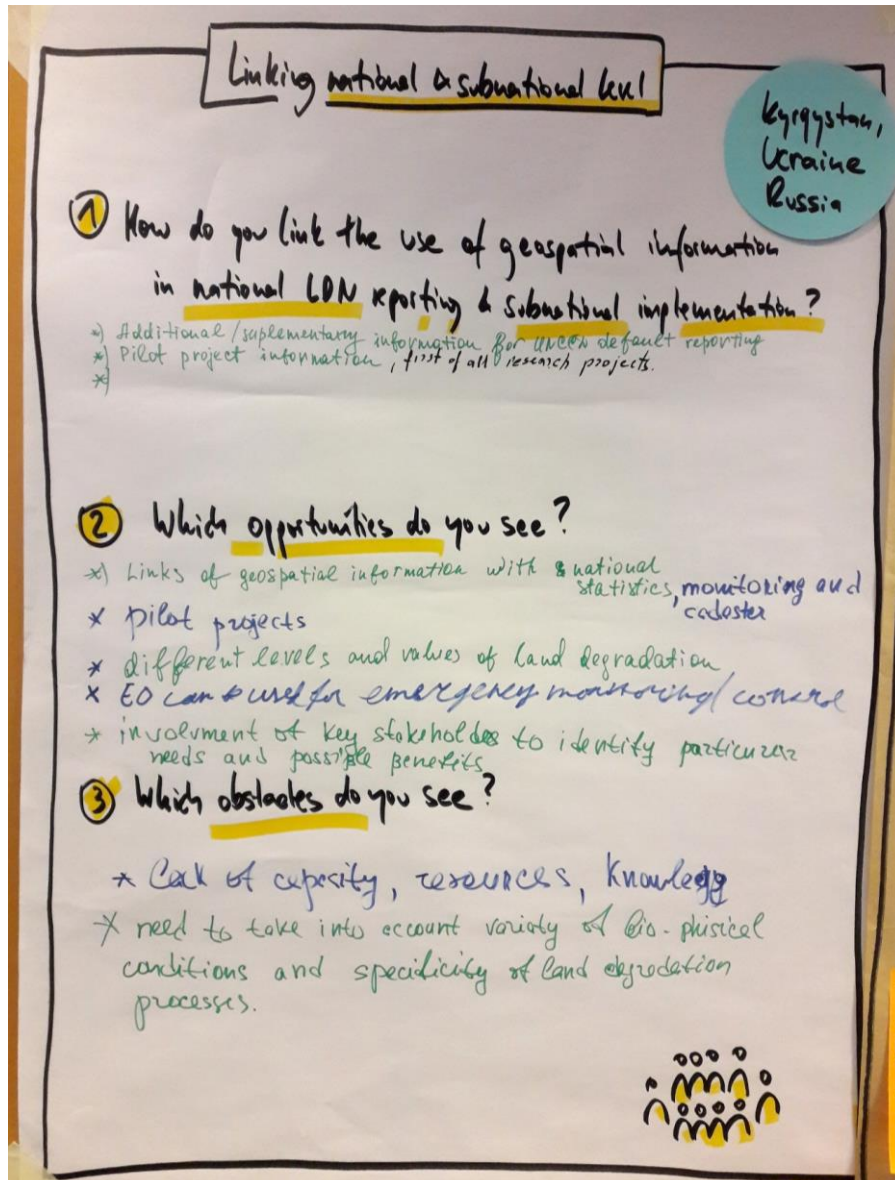 Linking national & subnational level
Kyrgystan,
Ucraine
Russia
1 How do you link the use of geospatial information
in national LDN reporting & subnational implementation?
*) Additional/suplementary information for UNCCD default reporting
*) Pilot project information, first of all research projects.
*)
2 Which opportunities do you see?
*) Links of geospatial information with national
statistics, monitoring and
cadester
* pilot projects
* different levels and values of land degradation
* EO can used for emergency monitoring/control
* involvment of key stakeholdes to identify particular
needs and possible benefits
3 Which obstacles do you see?
* Lack of capasity, resources, knowlegg
* need to take into account variaty of bio-phisical
conditions and specificity of land degredation
processes.